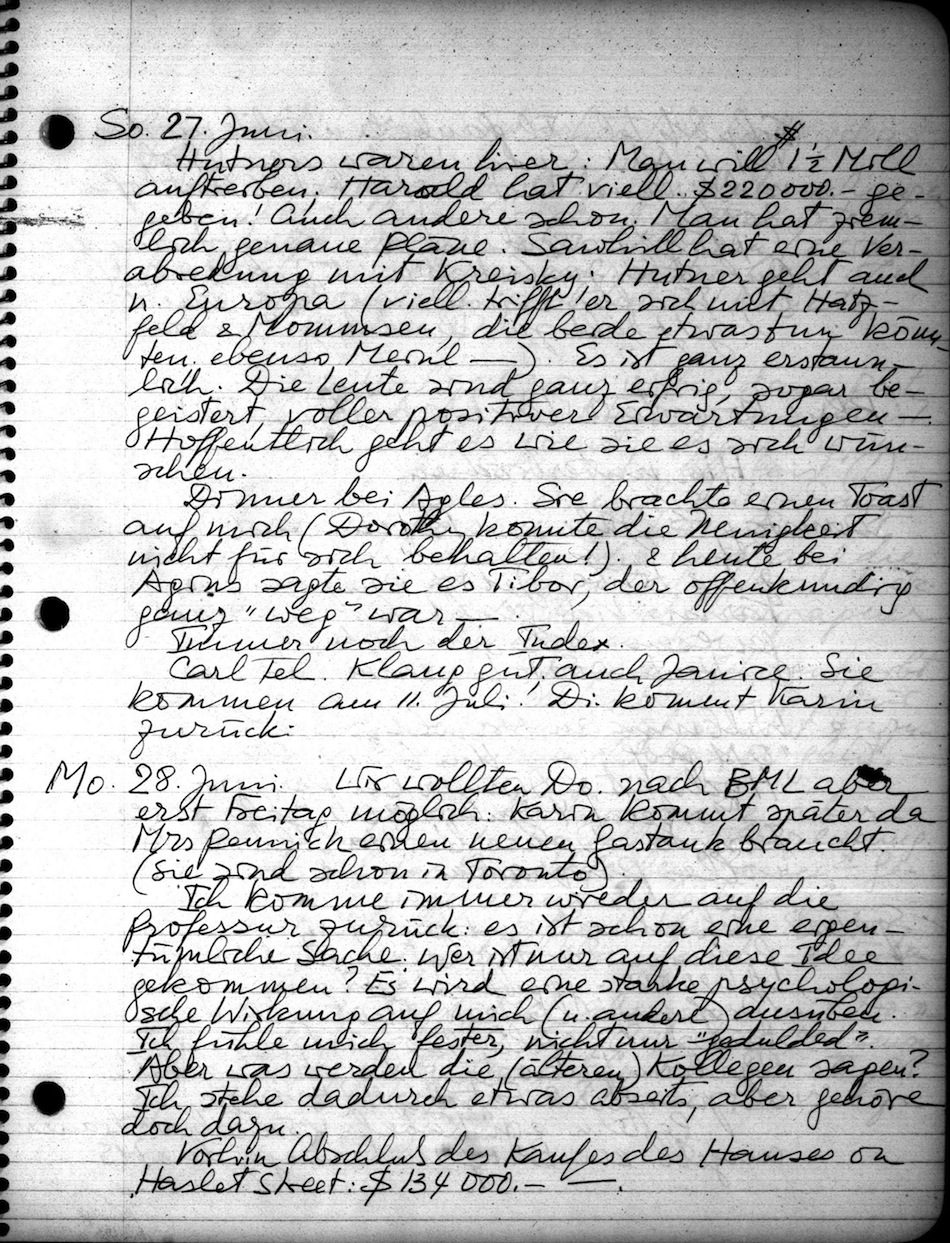 So. 27. Juni.
Hutners waren hier: Man will $ 1½ Mill
auftreiben. Harold hat viell. $220000.- ge-
geben! Auch andere schon. Man hat ziem-
lich genaue Pläne. Sawhill hat eine Ver-
abredung mit Kreisky. Hutner geht auch
n. Europa (viell. trifft er sich mit Hatz-
feld & Mommsen, die beide etwas tun könn-
ten, ebenso —). Es ist ganz erstaun-
lich. Die Leute sind ganz eifrig, sogar be-
geistert, voller positiver Erwartungen —.
Hoffentlich geht es wie sie es sich wün-
schen.
Dinner bei Agles. Sie brachte einen Toast
auf mich (Dorothy konnte die Neuigkeit
nicht für sich behalten!). & heute bei
Agins sagte sie es Tibor, der offenkundig
ganz "weg" war —.
Immer noch der Index.
Carl Tel. Klang gut, auch Janice. Sie
kommen am 11. Juli! Di. kommt Karin
zurück.
Mo. 28. Juni. Wir wollten Do. nach BML aber
erst Freitag möglich. Karin kommt später da
Mrs einen neuen Gastank braucht.
(Sie sind schon in Toronto).
Ich komme immer wieder auf die
Professur zurück: es ist schon eine eigen-
tümliche Sache. Wer ist nur auf diese Idee
gekommen? Es wird eine starke psychologi-
sche Wirkung auf mich (u. andere) ausüben.
Ich fühle mich fester, nicht nur "geduldet".
Aber was werden die (älteren) Kollegen sagen?
Ich stehe dadurch etwas abseits, aber gehöre
doch dazu.
Vorhin Abschluß des Kaufes des Hauses on
Haslet Street: $ 134 000.- —.